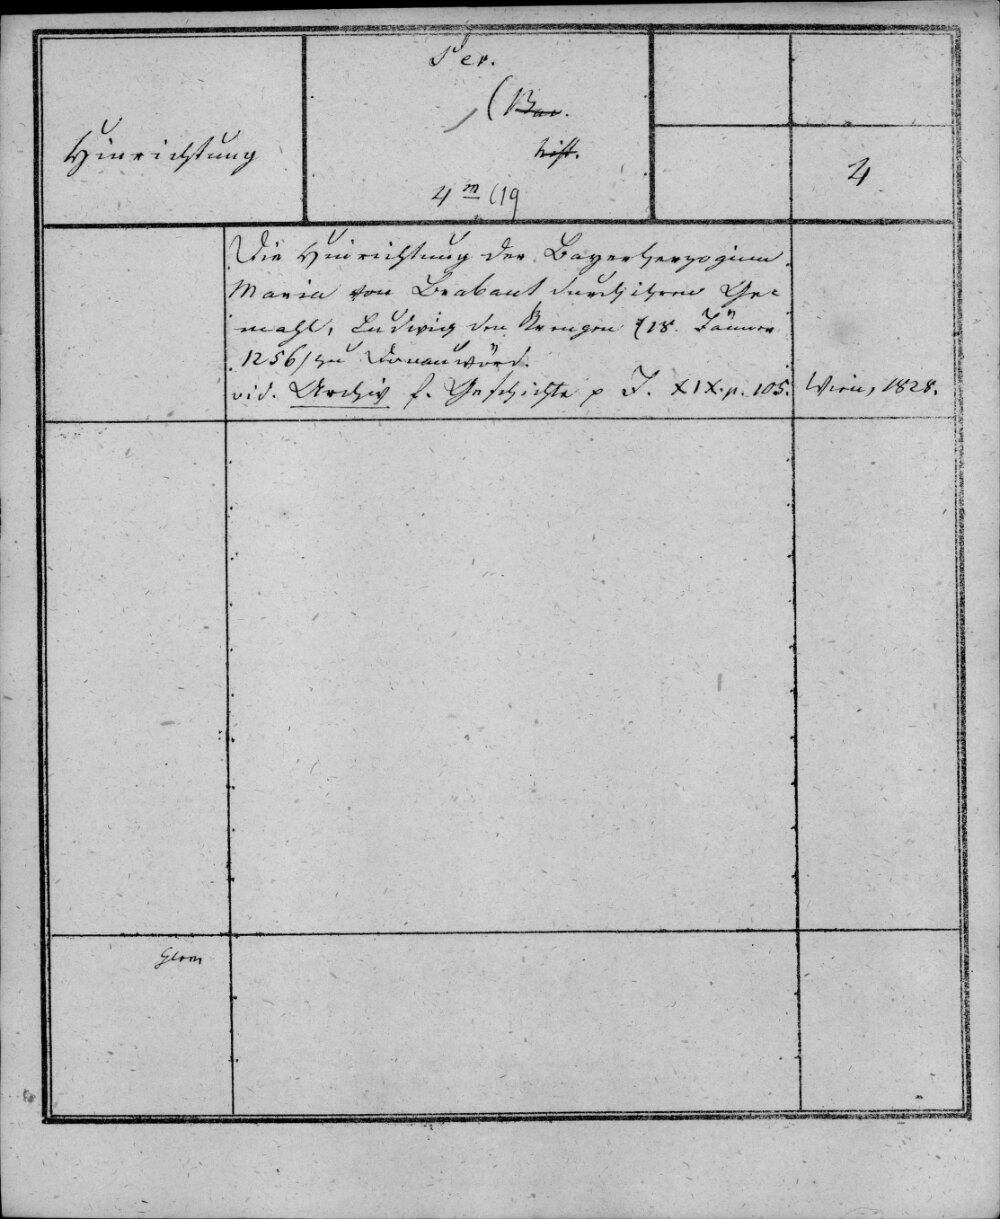 Hinrichtung
Per.
(Bav.
hist.
4 m (19
4
Die Hinrichtung der Bayerherzoginn
Maria von Brabant durch ihren Ge-
mahl, Ludwig den Strengen (18. Jänner
1256/ zu Donauwörd.
vid. Archiv f. Geschichte p J. XIX. p. 105. Wien, 1828.